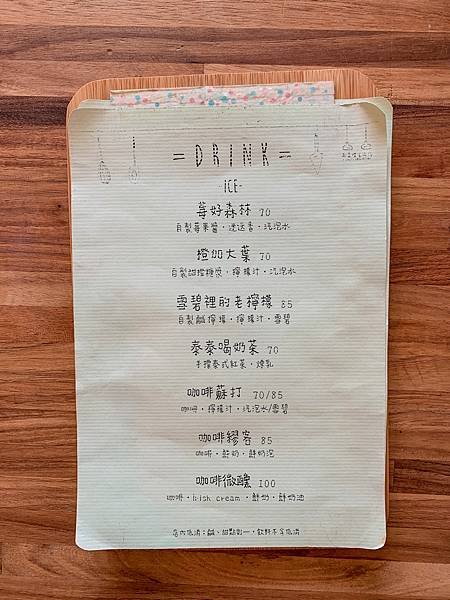 =DRINK=
-ICE-
莓好森林 70
自製莓果醬・迷迭香・汽泡水
橙加大葉 70
自製甜橙糖漿・檸檬汁・汽泡水
雪碧裡的老檸檬 85
自製鹹檸檬・檸檬汁・雪碧
泰泰喝奶茶 70
手標泰式紅茶・煉乳
咖啡蘇打 70/85
咖啡・檸檬汁・汽泡水/雪碧
咖啡繆客 85
咖啡・鮮奶・鮮奶泡
咖啡微醺 100
咖啡・Irish cream・鮮奶・鮮奶油
店內低消:鹹、甜點則一,飲料不含低消